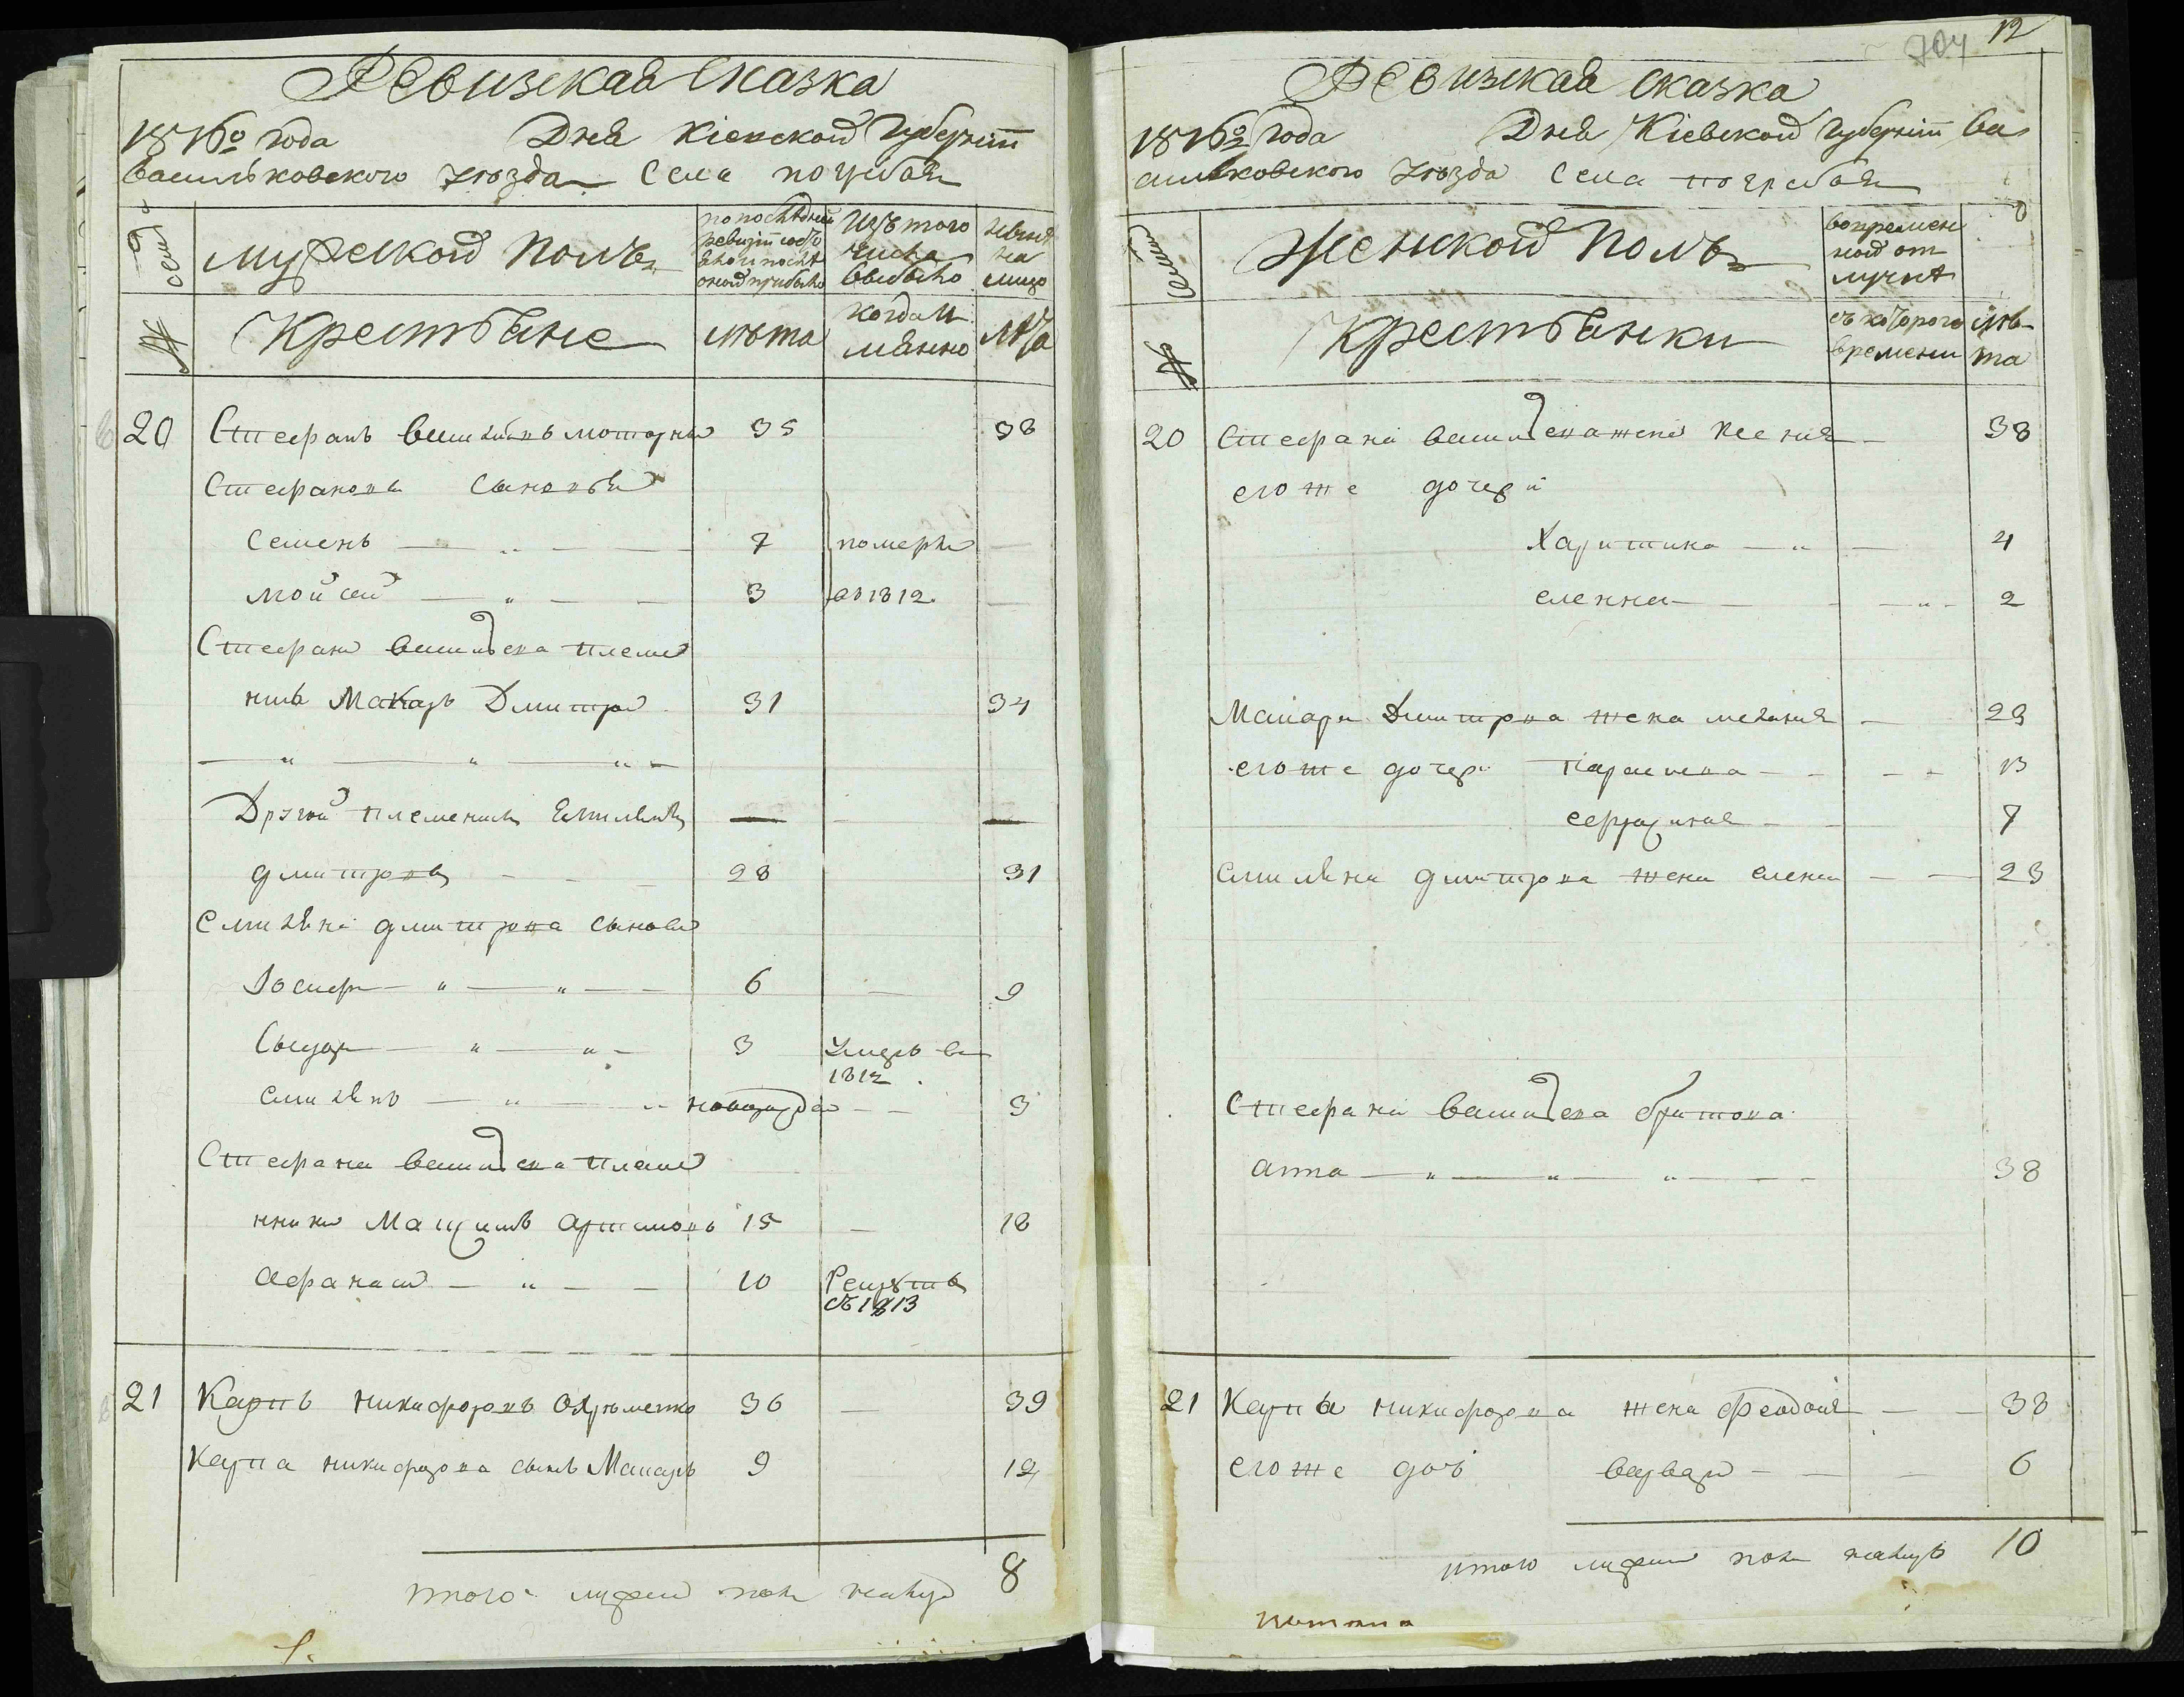 Ревизская Сказка
1816го года Дня Кіевской Губерніи
Васильковского уезда Села погребов
семей
мужской Полъ
по последней ревизіи состояло и после оной прибыло
Изъ того числа выбыло
ныне на лицо
№
Крестьяне
лѣта
когда именно
лѣта
20 Стефанъ василиевъ моторный 35 38
Стефановы сыновья
Семенъ 7 померли
мойсей 3 въ 1812 —
Стефана василиева племян
никъ Макаръ Дмитро 31 34
Другой племеникъ Емилианъ — —
дмитровъ 28 31
Емилиана дмитрова сынове
Іосиф 6 — 9
Сыдор 3 умеръ в
1812
емилианъ новорожде 3
Стефана василиева племе
нники Мащимъ артимовъ 15 — 18
Афанаси 10 Рекрутъ
съ 1813
21 Карпъ никифоровъ 36 — 39
Карпа никифорова сынъ Макаръ 9 12
итого мужеска пола налицо 8
12
704
Ревизская сказка
1816го года Дня Кіевской Губерніи Ва
силковского уезда Села погребов
Семей
Женской Полъ
во временной отлучке
№
Крестьянки
съ которого времени
лѣта
20 Стефана василиева жена Ксения — 38
его же дочери
Харитина — 4
елена — 2
Макара Дмитрова жена мелания — 29
его же дочери Параскева — 13
7
Емилиана дмитрова жена елена — 23
Стефана василиева братова
анна 38
21 Карпа никифорова жена Феодосия — 38
его же дочь варвара — 6
итого пола налицо 10